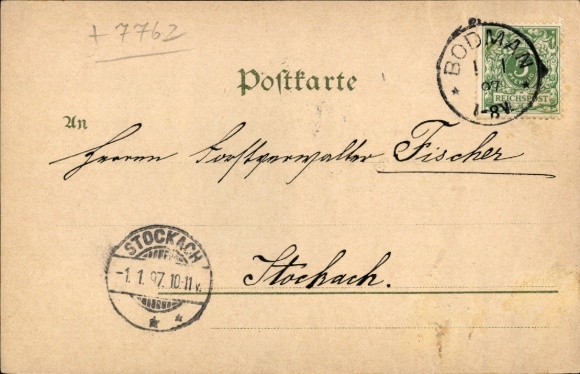 + 7762
BODMAN
1 1
97
1-8V.
5
REICHSPOST
Postkarte
An
Herren Forstverwalter Fischer
Stockach.
STOCKACH
-1. 1. 97. 10-11 V.